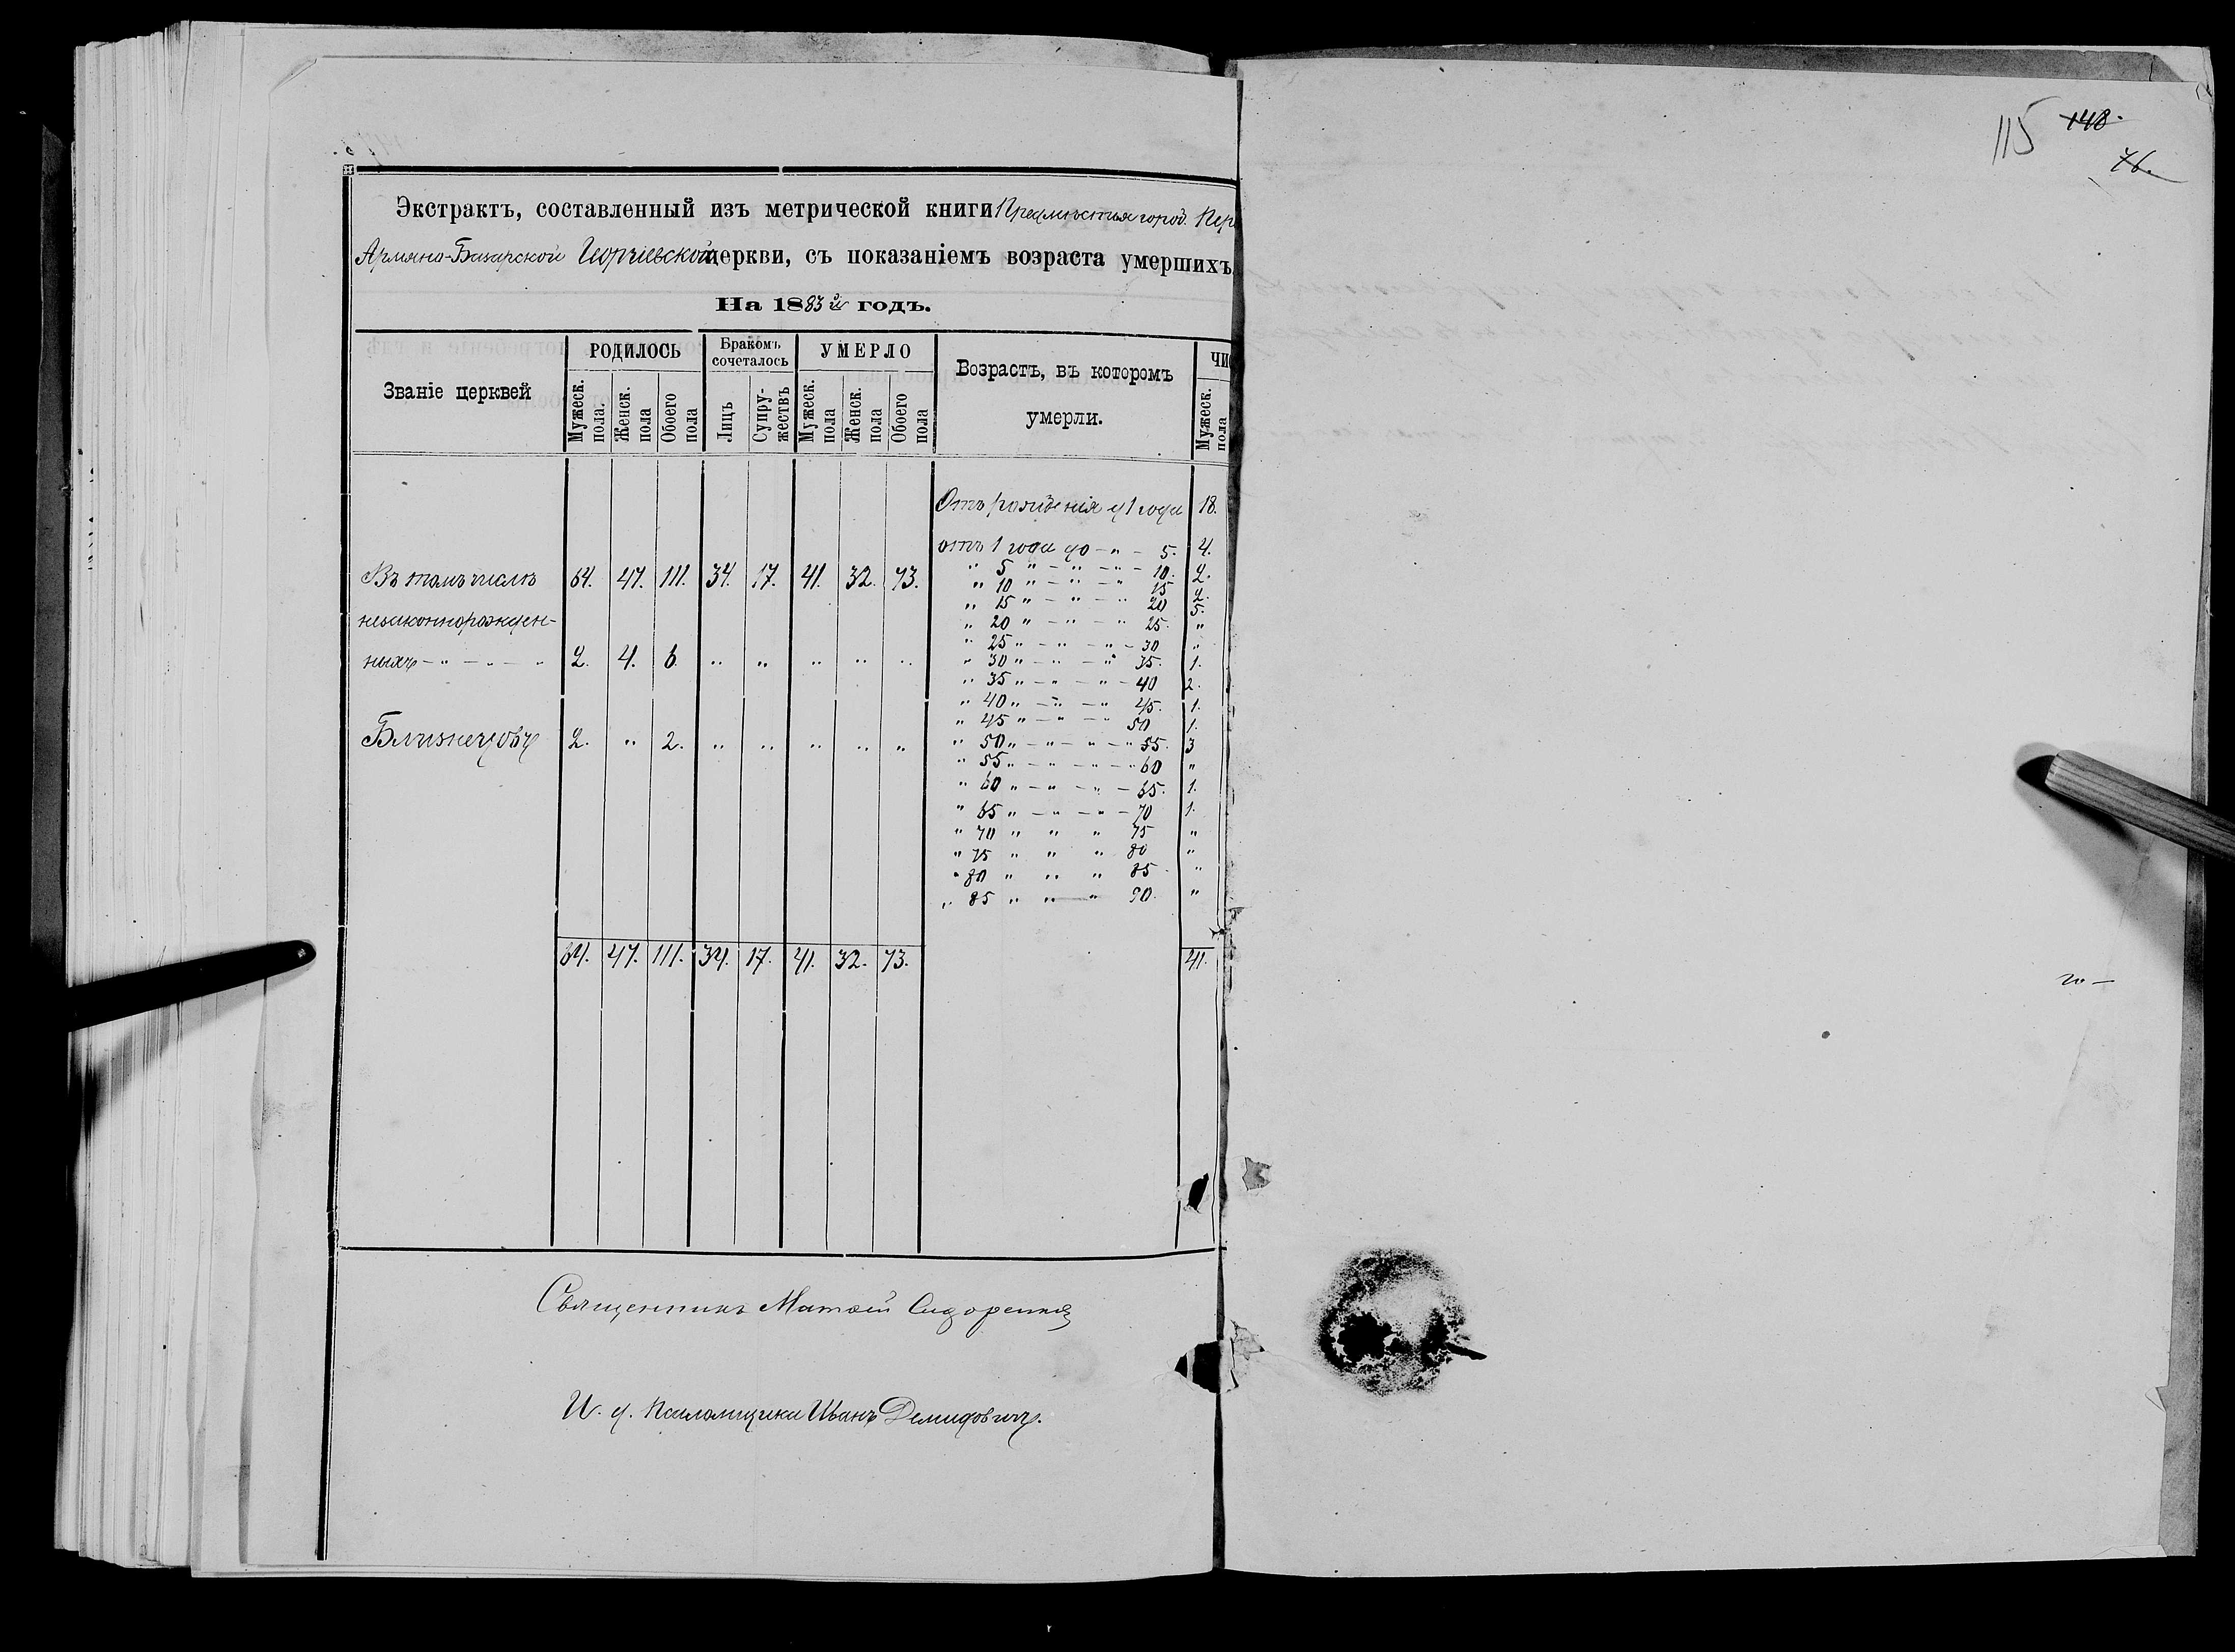 115 148.
76.
Экстрактъ, составленный изъ метрической книги Предмѣстья город. Пер
Армяно-Базарской Георгіевской церкви, съ показаніемъ возраста умершихъ
На 1883й годъ.
Званіе церквей
РОДИЛОСЬ
Мужеск. пола.
Женск. пола
Обоего пола
Бракомъ сочеталось
Лицъ
Супружествъ
УМЕРЛО
Мужеск. пола
Женск. пола
Обоего пола
Возрастъ, въ которомъ умерли.
ЧИС
Мужеск. пола
Отъ рожденія д 1 года 18.
отъ 1 года до - „ - 5. 4.
„ 5 „ - „ - „ - 10. 2.
„ 10 „ - „ - „ 15 2.
„ 15 „ - „ - „ 20 5.
„ 20 „ - „ - „ 25. „
„ 25 „ - „ - „ - 30 „
„ 30 „ - „ - „ 35. 1.
„ 35 „ - „ - „ - 40 2.
„ 40 „ - „ - „ 45. 1.
„ 45 „ - „ - „ 50 1.
„ 50 „ - „ - „ - „ 55. 3
„ 55 „ - „ - „ - „ 60 „
„ 60 „ - „ - „ - 65. 1.
„ 65 „ - „ - „ - 70 1.
„ 70 „ „ „ 75 „
„ 75 „ „ „ 80 „
„ 80 „ „ „ 85 „
„ 85 „ „ „ 90. „
Въ томъ числѣ 64. 47. 111. 34. 17. 41. 32. 73.
незаконнорожден-
ныхъ - „ - „ - „ 2. 4. 6. „ „ „ „ „
Близнецовъ 2. „ 2. „ „ „ „ „
64. 47. 111. 34. 17. 41. 32. 73. 41.
Священникъ Матѳій Сидоренко
И. д. Псаломщика Иванъ Демидовичъ.